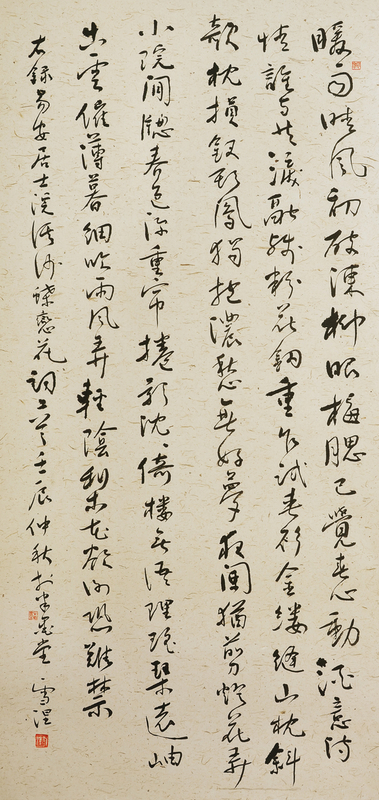 暖雨晴風初破凍柳眼梅腮已覺春心動酒意詩
情誰與共淚融殘粉花鈿重乍試夾衫金縷縫山枕斜
欹枕損釵頭鳳獨抱濃愁無好夢夜闌猶剪燈花弄
小院閒窗春色深重帘捲影沈沈倚樓無語理瑤琴遠岫
出雲催薄暮細吹雨風弄輕陰梨花欲謝恐難禁
右錄易安居士浣溪沙蝶戀花詞二首壬辰仲秋於半堂 雪涅